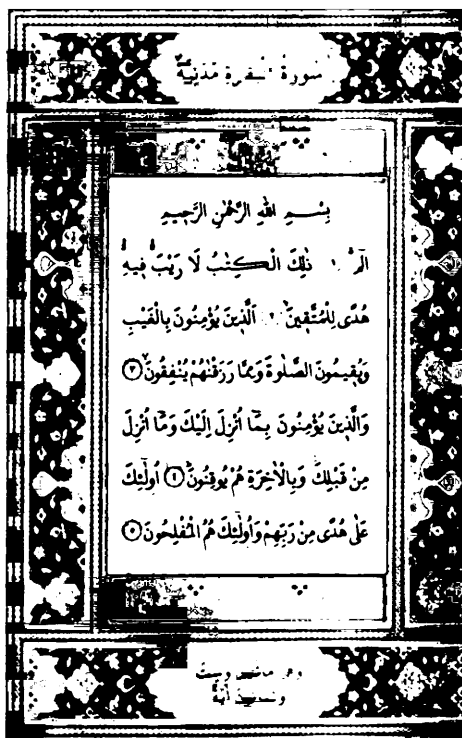 سورة البقرة مدنية
بِسْــمِ اللهِ الرَّحْمٰنِ الرَّحِيمِ
الٓمٓ ۝١ ذٰلِكَ الْكِتٰبُ لَا رَيْبَ فِيهِ
هُدًى لِلْمُتَّقِينَ ۝٢ اَلَّذِينَ يُؤْمِنُونَ بِالْغَيْبِ
وَيُقِيمُونَ الصَّلٰوةَ وَمِمَّا رَزَقْنٰهُمْ يُنْفِقُونَ ۝٣
وَالَّذِينَ يُؤْمِنُونَ بِمَٓا اُنْزِلَ اِلَيْكَ وَمَٓا اُنْزِلَ
مِنْ قَبْلِكَ وَبِالْاٰخِرَةِ هُمْ يُوقِنُونَ ۝٤ اُولٰٓئِكَ
عَلٰى هُدًى مِنْ رَبِّهِمْ وَاُولٰٓئِكَ هُمُ الْمُفْلِحُونَ ۝٥